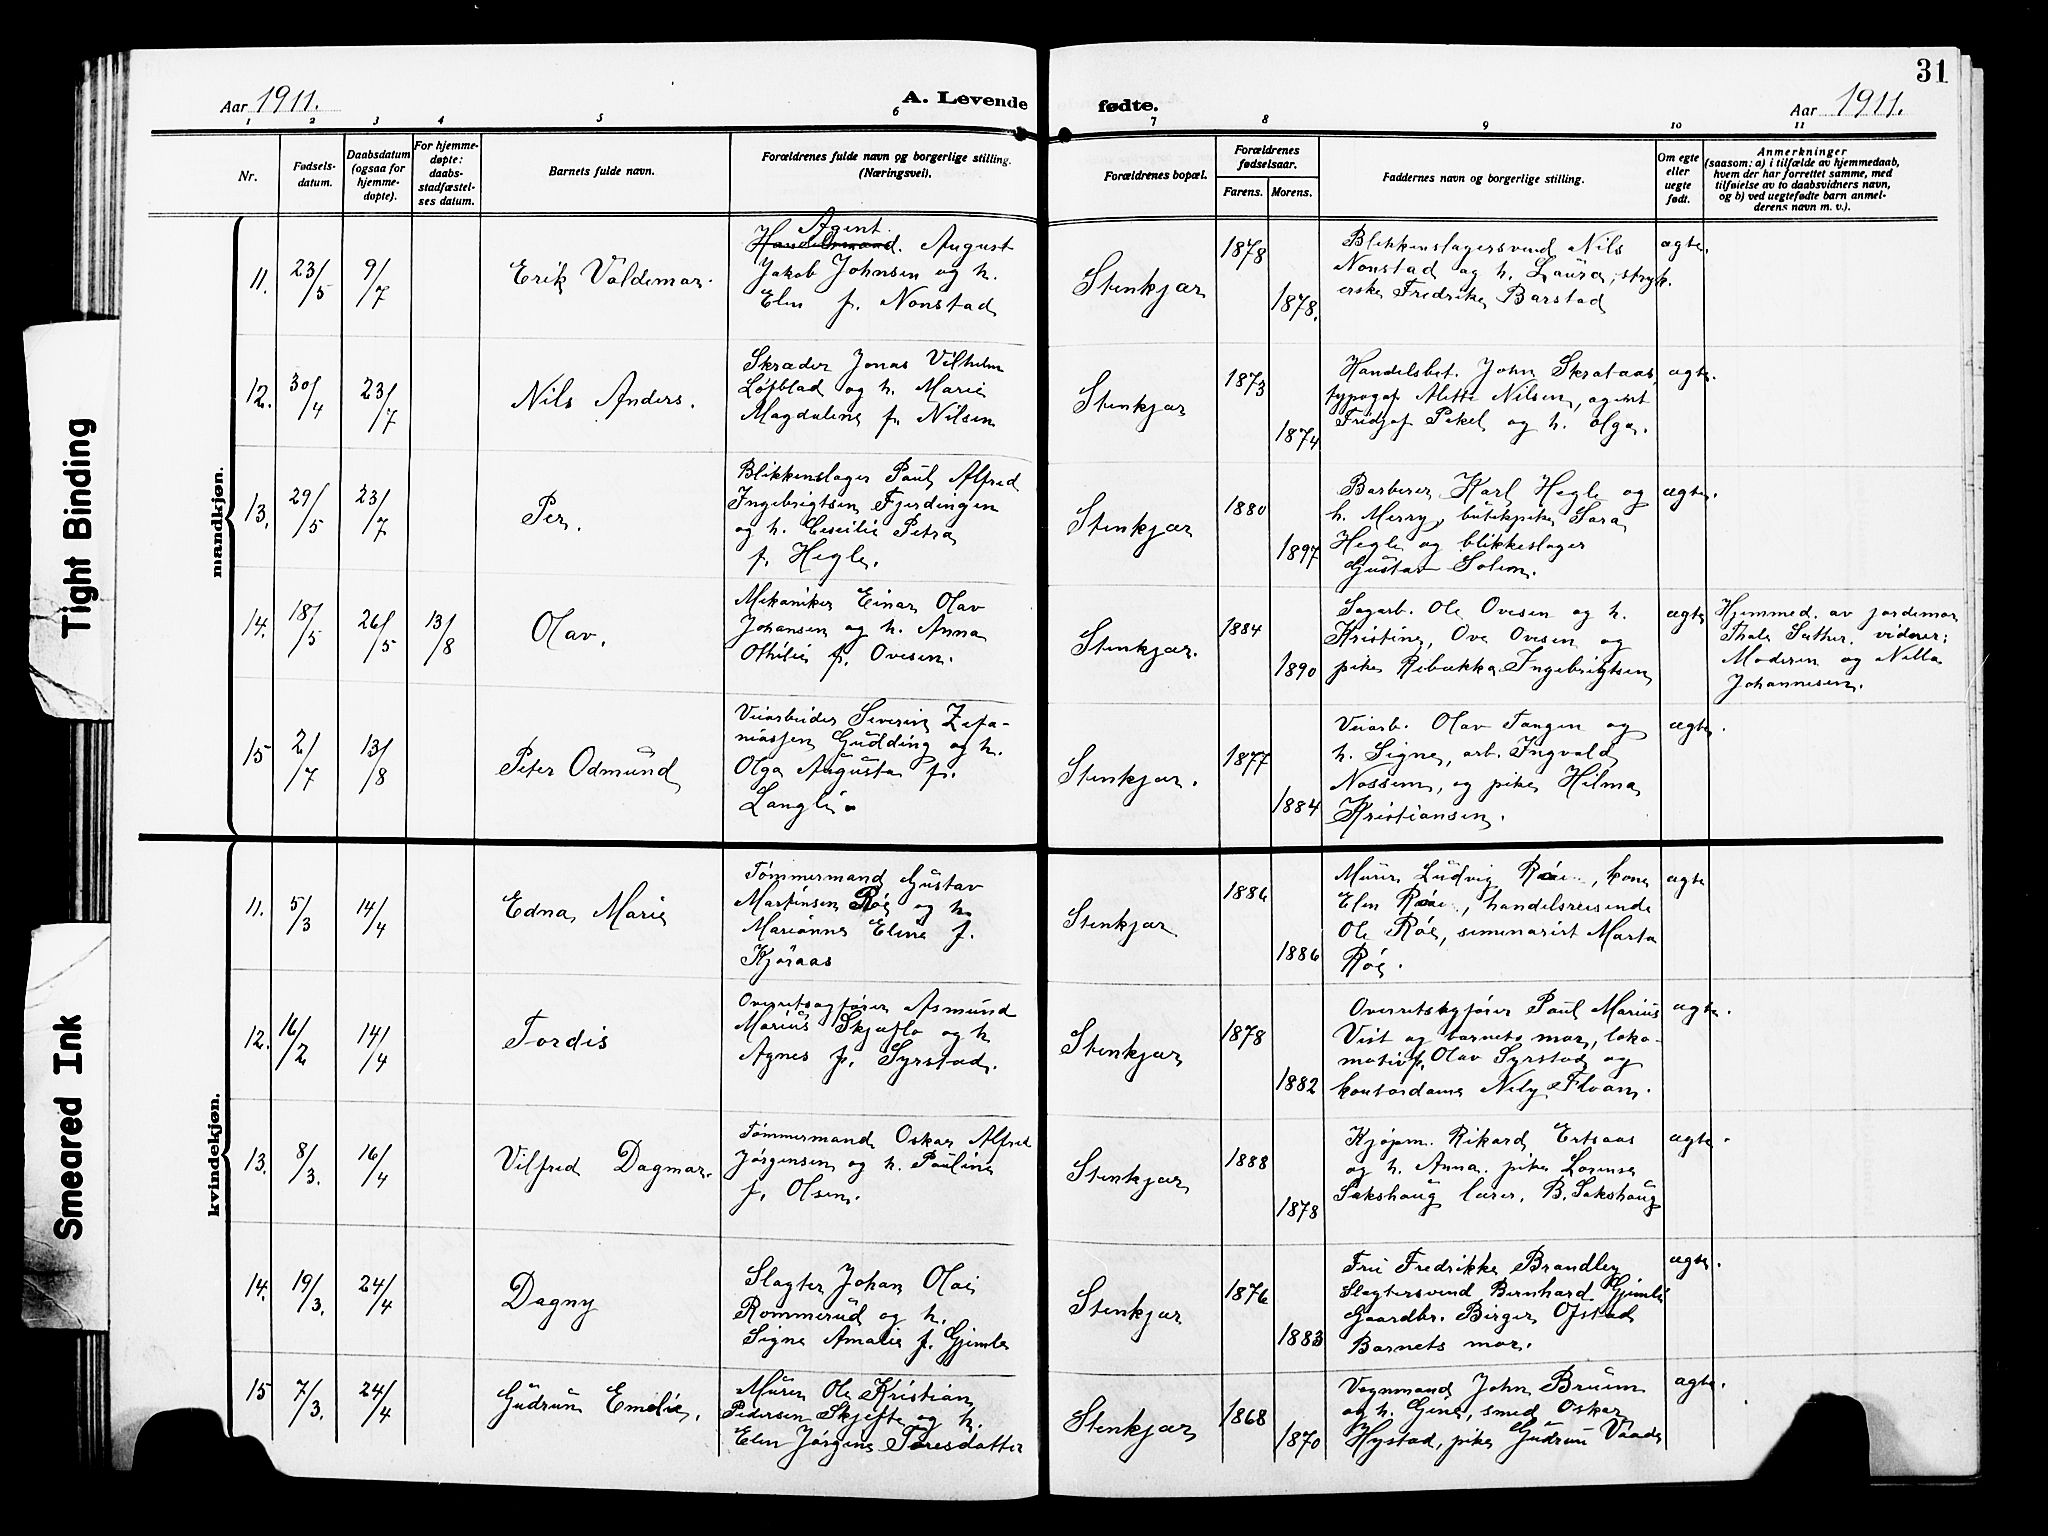 31
Aar 1911. A. Levende fødte. Aar 1911.
1 2 3 4 5 6 7 8 9 10 11
Nr.
Fødsels-
datum.
Daabsdatum
(ogsaa for
hjemme-
døpte).
For hjemme-
døpte:
daabs-
stadfæstel-
ses datum.
Barnets fulde navn.
Forældrenes fulde navn og borgerlige stilling.
(Næringsvei).
Forældrenes bopæl.
Forældrenes
fødselsaar.
Farens. Morens.
Faddernes navn og borgerlige stilling.
Om egte
eller
uegte
født.
Anmerkninger
(saasom: a) i tilfælde av hjemmedaab,
hvem der har forrettet samme, med
tilføielse av to daabsvidners navn,
og b) ved uegtefødte barn anmel-
derens navn m. v.).
mandkjøn.
11. 23/5 9/7
Erik Valdemar.
Agent
Handelsmand. August
Jakob Johnsen og h.
Elen f. Nonstad
Stenkjær
1878
1878.
Blikkenslagersvend Nils
Nonstad og h. Laura, stryk.
erske Fredrikke Barstad
ægte.
12. 30/4 23/7
Nils Anders.
Skræder Jonas Vilhelm
Løfblad og h. Marie
Magdaline f. Nilsen
Stenkjær
1873
1874
Handelsbet. John Skrataas,
typograf Mette Nilsen, agent
Fridjof Pekel og h. Olga.
ægte.
13. 29/5 23/7
Per.
Blikkenslager Paul Alfred
Ingebrigtsen Fjerdingen
og h. Cecilie Petra
f. Hegle.
Stenkjær
1880
1897
Barberer Karl Hegle og
h. Merry, butikpike Sara
Hegle og blikkeslager
Gustav Solem.
ægte.
14. 18/5 26/5 13/8
Olav.
Mekaniker Einar Olav
Johansen og h. Anna
Othilie f. Ovesen.
Stenkjær.
1884
1890
Sagarb. Ole Ovesen og h.
Kristine, Ove Ovesen og
pike Rebekka Ingebrigtsen
ægte
Hjemmed. av jordemor
Thale Sæther. vidner:
Moderen og Nella
Johannesen.
15 2/7 13/8
Peter Odmund
Veiarbeider Severin Zefa-
niassen Gudding og h.
Olga Augusta f.
Langli.
Stenkjær.
1877
1884
Veiarb. Olav Tangen og
h. Signe, arb. Ingvald
Nossum, og pike Hilma
Kristiansen.
ægte.
kvindekjøn.
11. 5/3 14/4
Edna Marie
Tømmermand Gustav
Martinsen Røe og h.
Marianne Eline f.
Kjøraas
Stenkjær
1886
1886
Murer Ludvig Røe, kone
Elen Røe, handelsreisende
Ole Røe, seminarist Marta
Røe.
ægte
12. 16/2 14/4
Tordis
Overretssagfører Asmund
Marius Skjæflo og h
Agnes f. Syrstad.
Stenkjær
1878
1882
Overretskfører Paul Marius
Vist og barnets mor, loko-
motivf. Olav Syrstad og
kontordame Nely Floan.
ægte.
13. 8/3. 16/4
Vilfred Dagmar.
Tømmermand Oskar Alfred
Jørgensen og h. Pauline
f. Olsen.
Stenkjær
1888
1878
Kjøpm. Rikard Ertsaas
og h. Anna. pike Lorense
Sakshaug lærer. B. Sakshaug
ægte.
14. 19/3. 24/4
Dagny
Slagter Johan Olai
Rommerud og h.
Signe Amalie f. Gjimle
Stenkjær
1876
1883
Fru Fredrikke Brandley
Slagtersvend Bernhard Gjimle
Gaardbr. Birger Ofstad
Barnets mor.
ægte.
15 7/3. 24/4
Gudrun Emelie.
Murer Ole Kristian
Pedersen Skjefte og h.
Elen Jørgine Toresdatter
Stenkjær
1868
1870
Vognmand John Bruem
og h. Gine, smed Oskar
Hystad, pike Gudrun Vaade
ægte.
Tight Binding
Smeared Ink